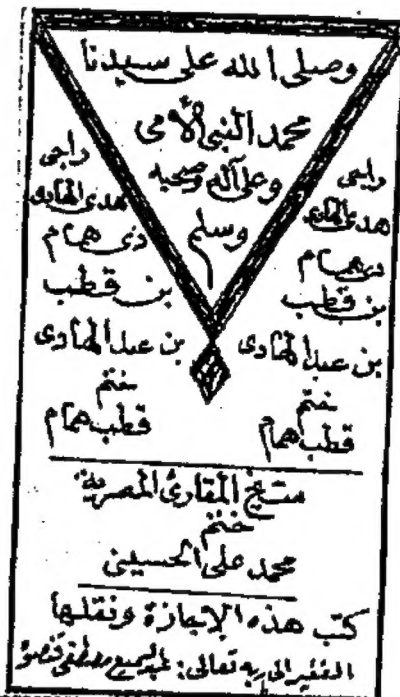 وصلى الله على سيدنا
محمد النبى الأمى
وعلى آله وصحبه
وسلم
راجى
هدى الهادى
ذى همام
بن قطب
بن عبد الهادى
ختم
قطب همام
راجى
هدى الهادى
ذى همام
بن قطب
بن عبد الهادى
ختم
قطب همام
شيخ المقارئ المصرية
ختم
محمد على الحسينى
كتب هذه الإجازة ونقلها
الفقير إلى ربه تعالى: عبد السميع مصطفى